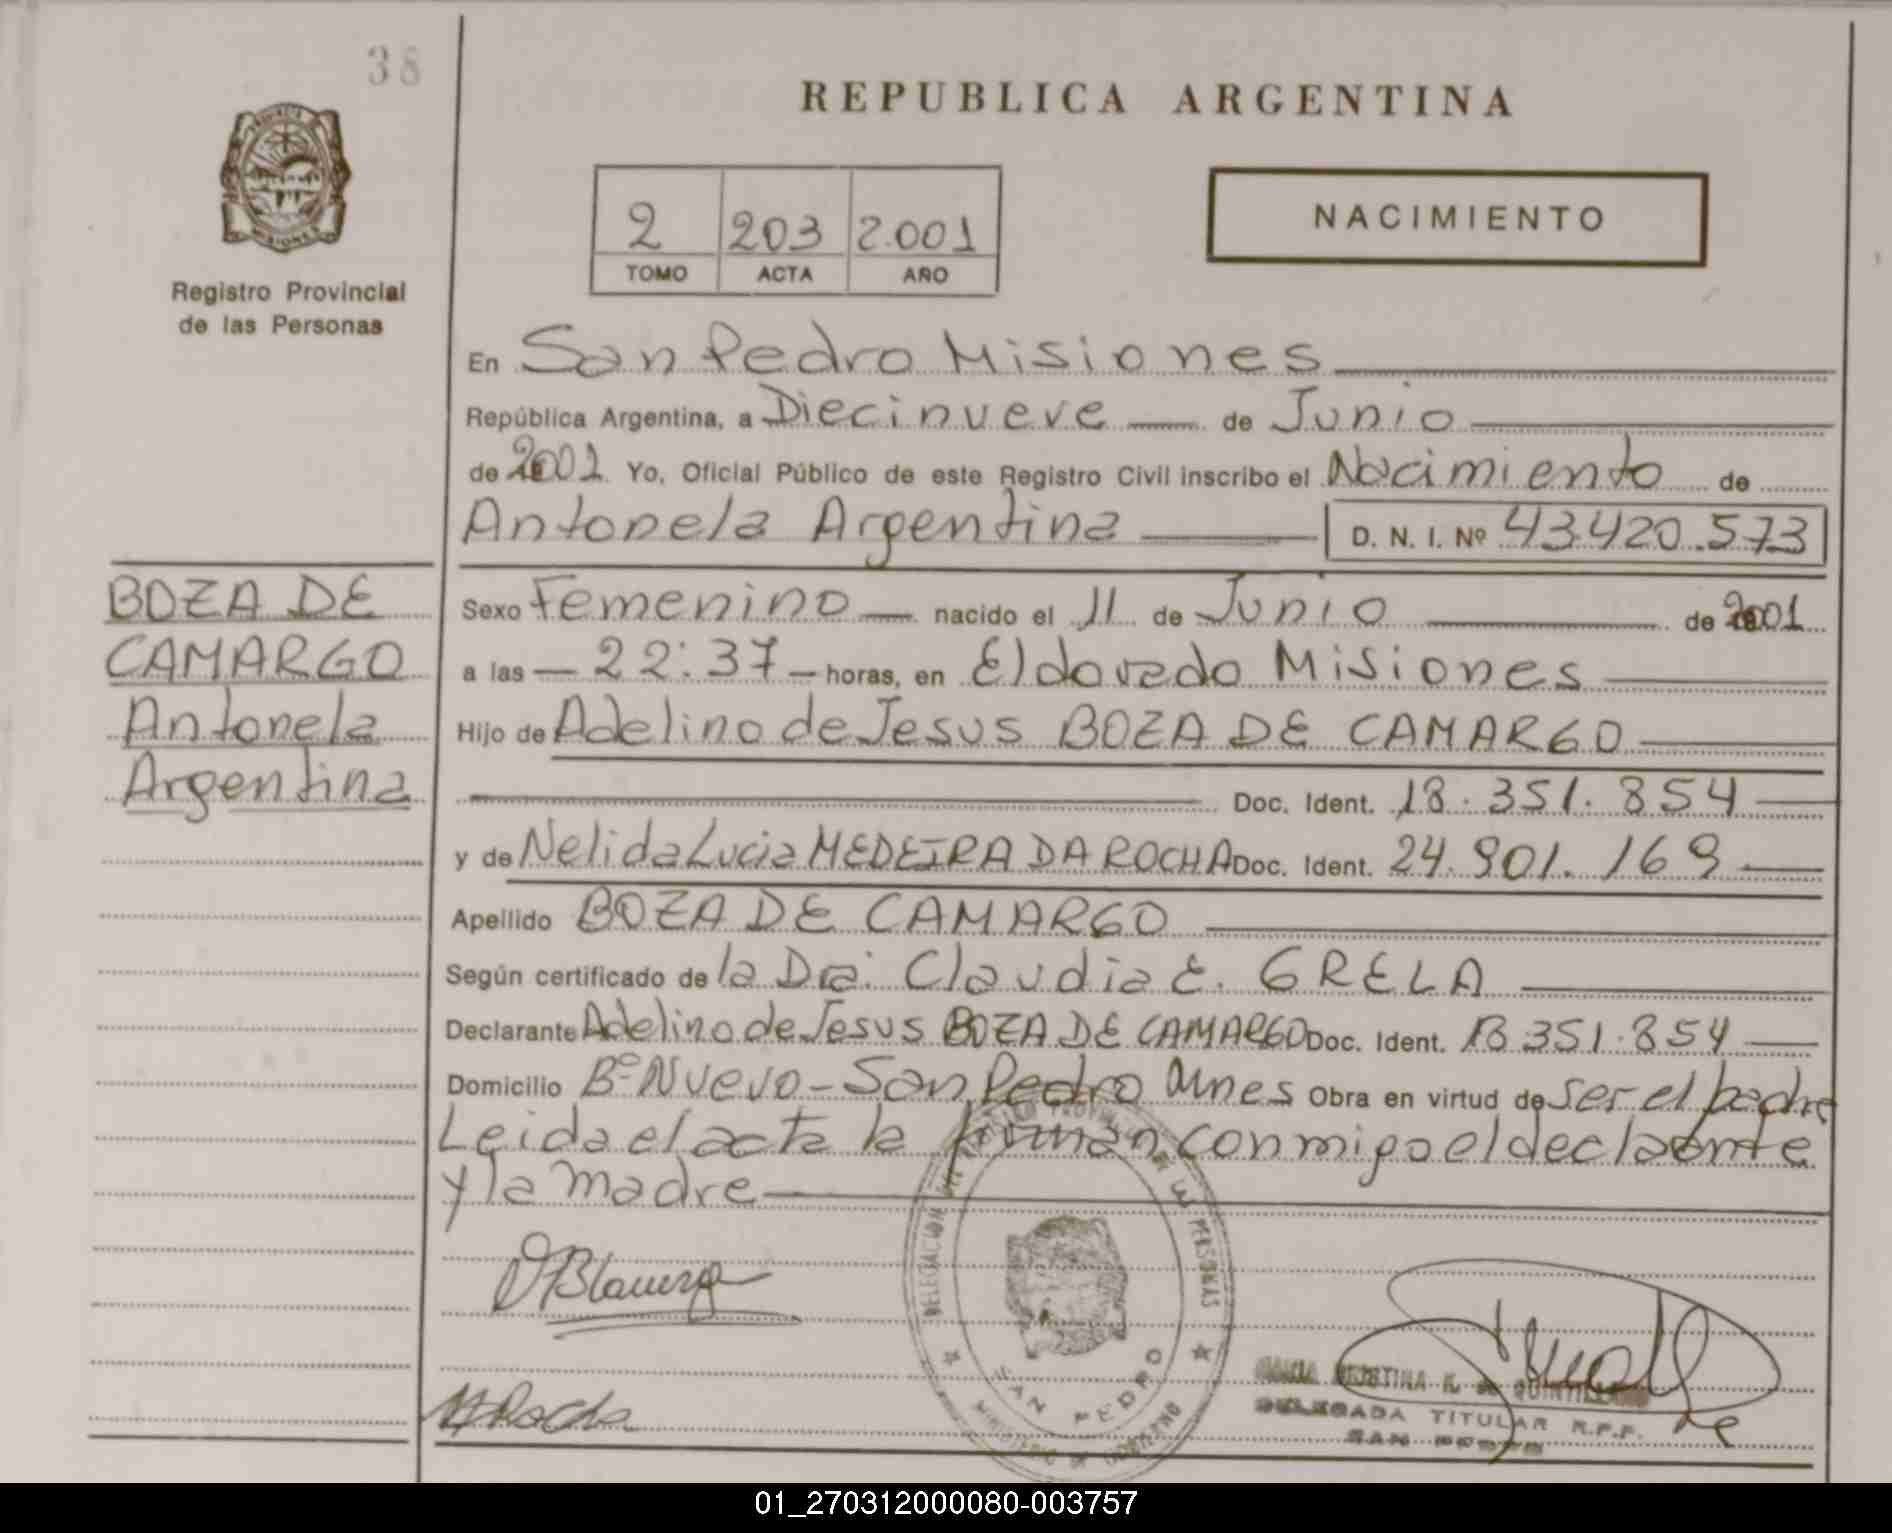 38
REPUBLICA ARGENTINA
PROVINCIA
MISIONES
Registro Provincial
de las Personas
2 203 2.001
TOMO ACTA AÑO
NACIMIENTO
En San Pedro Misiones
República Argentina, a Diecinueve de Junio
de 2001 Yo, Oficial Público de este Registro Civil inscribo el Nacimiento de
Antonela Argentina D. N. I. Nº 43.420.573
BOZA DE
CAMARGO
Antonela
Argentina
Sexo Femenino nacido el 11 de Junio de 2001
a las 22:37 horas, en Eldorado Misiones
Hijo de Adelino de Jesus BOZA DE CAMARGO
Doc. Ident. 18.351.854
y de Nelida Lucia MEDEIRA DA ROCHA Doc. Ident. 24.901.169
Apellido BOZA DE CAMARGO
Según certificado de la Dra. Claudia E. GRELA
Declarante Adelino de Jesus BOZA DE CAMARGO Doc. Ident. 18.351.854
Domicilio Bº Nuevo - San Pedro Mnes Obra en virtud de ser el padre
Leida el acta la firman conmigo el declarante
y la madre
DELEGACION DE LAS PERSONAS
SAN PEDRO
MINISTERIO DE GOBIERNO
DELEGADA TITULAR R.P.P.
SAN PEDRO
01_270312000080-003757